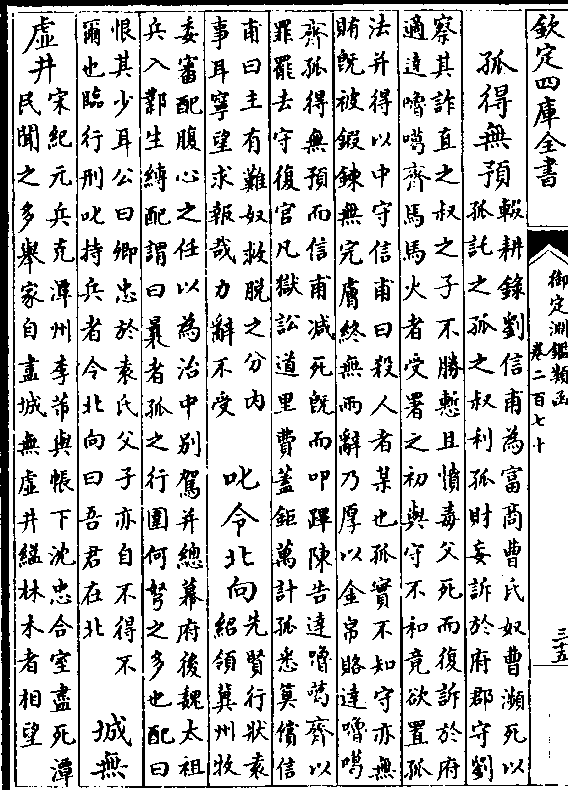 欽定四庫全書
御定淵鑑類函
卷二百七十
三五
孤得無預
輟耕錄劉信甫為富商曹氏奴曹瀕死以
孤託之孤之叔利孤財妄訴於府郡守劉
察其詐直之叔之子不勝慙且憤毒父死而復訴於府
適達嚕噶齊馬馬火者受署之初與守不和竟欲置孤
法并得以中守信甫曰殺人者某也孤實不知守亦無
賄既被鍛鍊無完膚終無兩辭乃厚以金帛賂達嚕噶
齊孤得無預而信甫减死既而叩蹕陳告達嚕噶齊以
罪罷去守復官凡獄訟道里費蓋鉅萬計孤悉算償信
甫曰主有難奴救脫之分内
事耳寧望求報哉力辭不受
叱令北向
先賢行狀袁
紹領冀州牧
委審配腹心之任以為治中別駕并總幕府後魏太祖
兵入鄴生縛配謂曰曩者孤之行圍何弩之多也配曰
恨其少耳公曰卿忠於袁氏父子亦自不得不
爾也臨行刑叱持兵者令北向曰吾君在北
城無
虛井
宋紀元兵克潭州李芾與帳下沈忠合室盡死潭
民聞之多舉家自盡城無虛井縊林木者相望